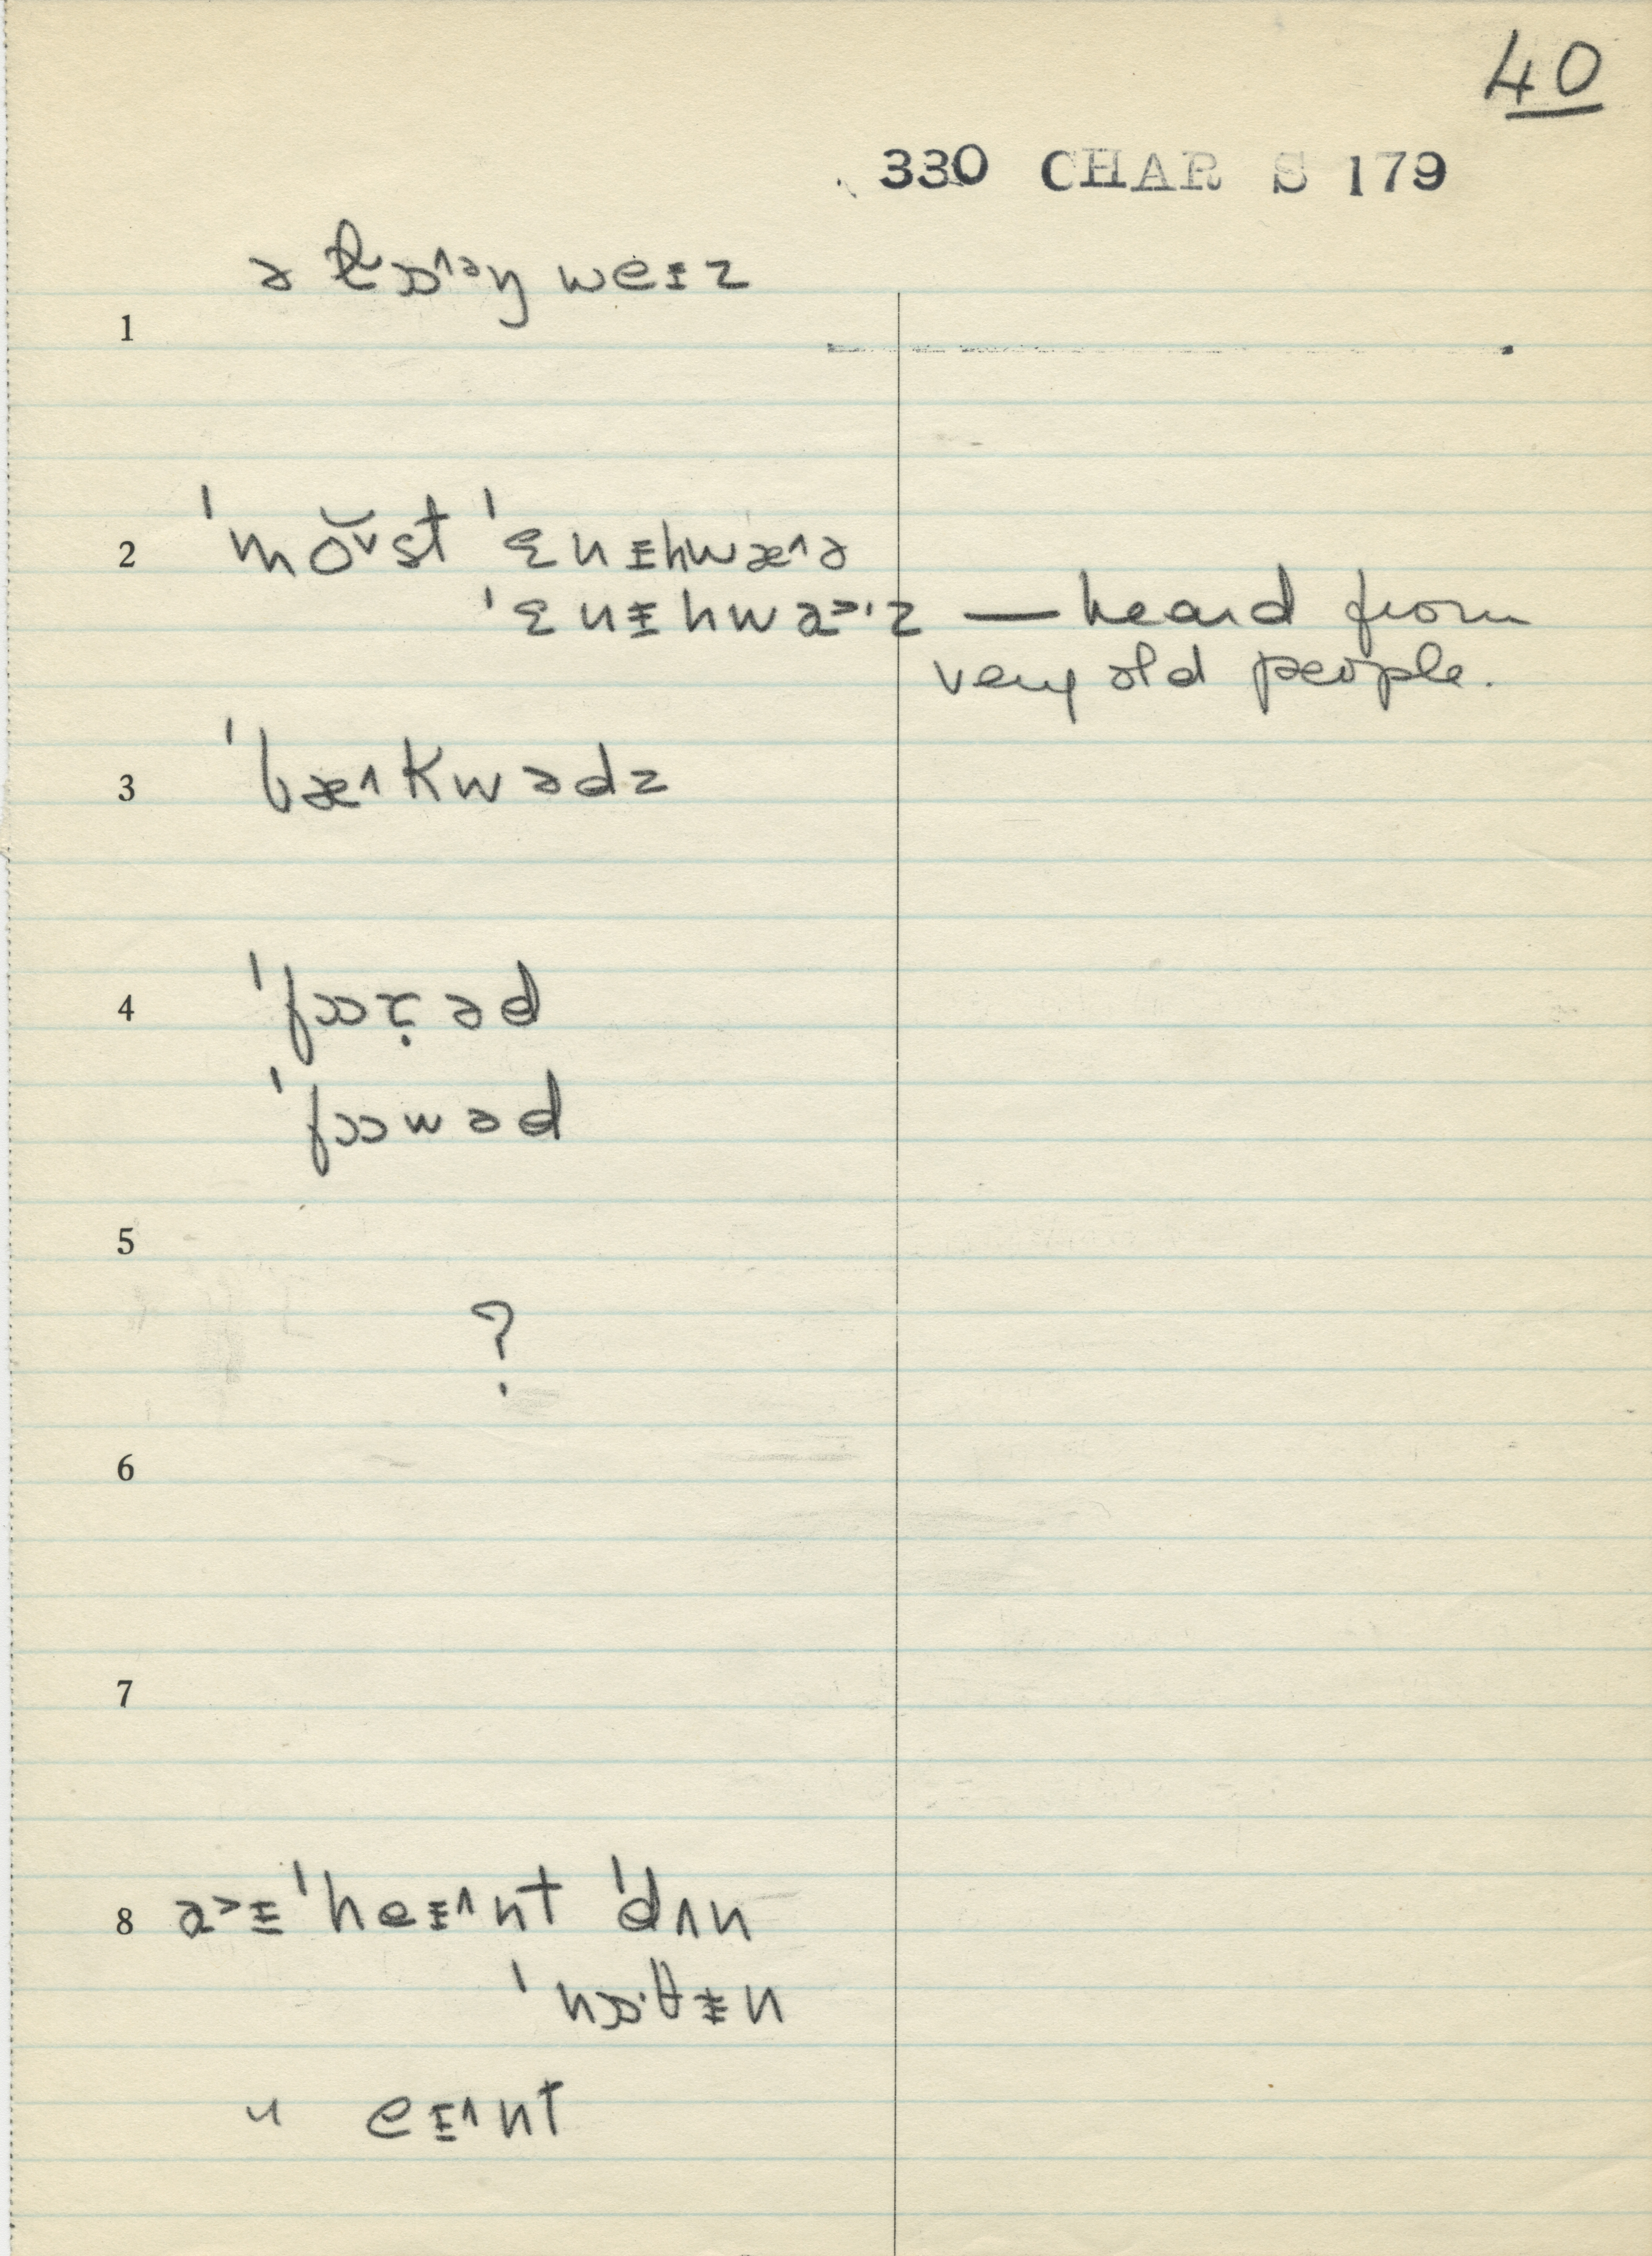 40
330 CHAR S 179
ə ɫɒ˄ᵊŋ weɪz
1
2 ˈmŏ˅st ˈɛnɪhwæ˄ə
ˈɛnɪhwa˃ˑz — heard from
very old people.
3 ˈbæ˄kwədz
4 ˈfɔɔɽəd
ˈfɔɔwəd
5
?
6
7
8 a˃ɪ ˈheɪ˄nt ˈdʌn
ˈnɒˑθɪn
〃 eɪ˄nt